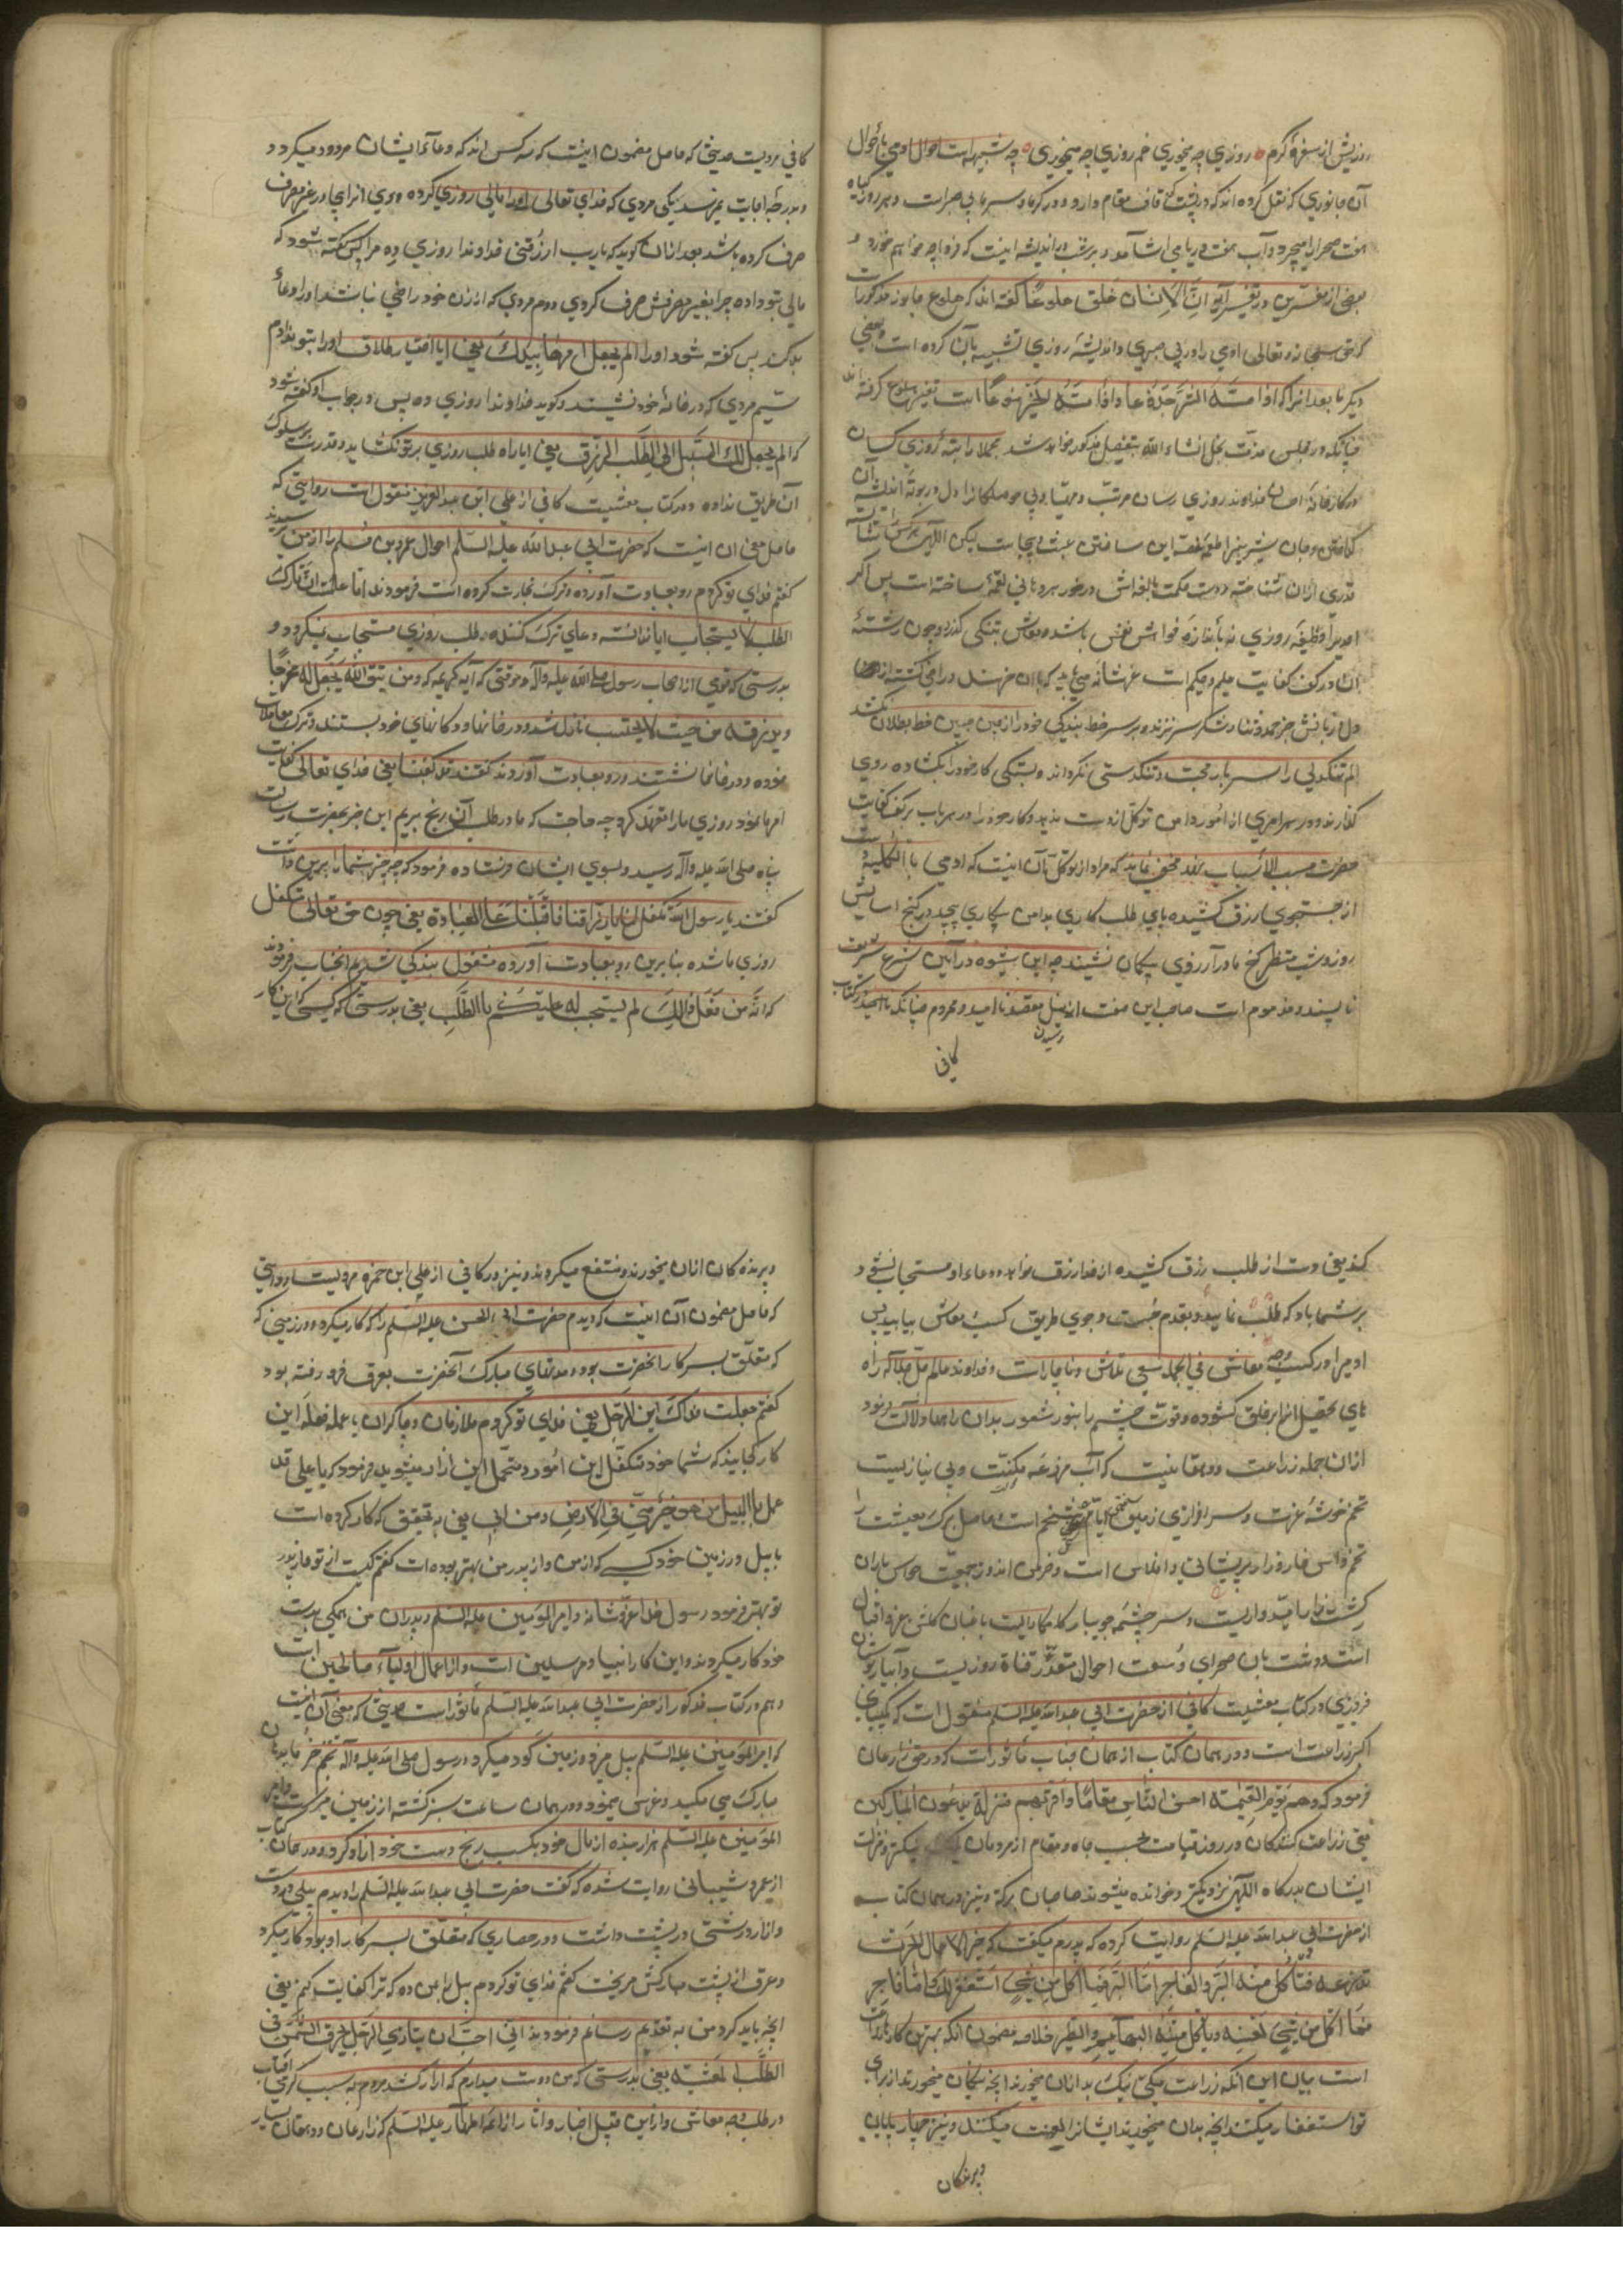 روزیش از سفرهٔ کرم ه روزی چه میخوری غم روزی چه میخوری ه چه شبیه است احوال اومی بأحوال
آن جانوری که نقل کرده اند که در پشت کوه قاف مقام دارد و در کرما و سرما بی صبر است و هر روز گیاه
هفت صحرا را میچرد و آب هفت دریا می اشامد و هر شب در اندیشه اینست که فردا چه خواهم خورد و
بعضی از مفسرین در تفسیر آیه انّ الانسان خلق هلوعًا گفته اند که هلوع جانور مذکور است
که حق سبحانه و تعالی ادمی را در بی صبری و اندیشهٔ روزی تشبیه بآن کرده است و بعضی
دیگر ما بعد انرا که اذا مسّه الشّرّ جزوعا و اذا مسّه الخیر منوعًا است تفسیر هلوع گرفته اند
چنانکه در مجلس مذمّت بخل انشاء الله بتفصیل مذکور خواهد شد مجملا راتبهٔ روزی کسان
در کارخانهٔ احسان خداوند روزی رسان مرتّب و مهیّا و بی موصلکانرا دل در بوتهٔ اندیشه آن
گداختن و جان شیرین را طعمهٔ غصه این ساختن عبث بیجاست لیکن اللهی هر کس نشأئه
قدری از ان شناخته و دست حکمت بالغه اش در خور هر دهانی لقمهٔ ساخته است پس اگر
احدیرا وظیفه روزی نه بأندازه خواش نفس باشد و معاش بتنگی گذرد چون رشتهٔ
ان در کف کفایت علیم و حکیم است عزشانه می باید که با ان خرسند و راضی گشته از رضا
دل و زبانش جز حمد و ثنا و شکر سر نزند و بر سر خط بندگی خود را از چین جبین خط بطلان نکشد
الم تنگدلی را سربار محنت و تنگدستی نگرداند و بستگی کار خود را بگشاده روی
گذارند و در هر امری از امور دامن توکل از دست ندهد و کار خود را در هر باب بر کف کفایت
حضرت مسبب الأسباب نهد مخفی نماند که مراد از توکل نه آن اینست که ادمی بالکلیهٔ دست
از جستجوی رزق کشیده پای طلب کاری بدامن بیکاری پیچد و در کنج اسایش
روز و شب منتظر گنج باد آورد روی بکمان نشیند چه این شیوه در آیین شرع شریعت
ناپسند و مذموم است صاحب این صفت از نیل مقصد نا امید و محروم چنانکه نا امیددر کتاب
رسیدن
کافی
کافی مرویست حدیثی که حاصل مضمون اینست که سه کس اند که دعاء ایشان مردود میگردد
و بدرجهٔ اجابت نمیرسد یکی مردی که خدای تعالی او را مالی روزی کرده و وی انرا بیجا و در غیر مصرف
صرف کرده باشد بعد از ان گوید که یا رب ارزقنی خداوندا روزی ده مرا پس گفته شود که
مالی بتو داده چرا بغیر مصرفش صرف کردی دوم مردی که از زن خود راضی نباشد او را دعأ
بد کند پس گفته شود او را الم یجعل امرها بیدک یعنی ایا اختیار طلاق او را بتو ندادم
سیّم مردی که در خانهٔ خود نشیند و گوید خداوندا روزی ده پس در جواب او گفته شود
که الم یجعل لک السّبیل الی الطّلب الرّزق یعنی ایا راه طلب روزی بر تو نگشاید و قدرت بر سلوک
آن طریق نداده و در کتاب معیشت کافی از علی ابن عبد العزیز منقول است روایتی که
حاصل معنی ان اینست که حضرت ابی عبد الله علیه السّلم احوال عمرو بن مسلم را از من پرسیدند
گفتم فدای تو گردم رو بعبادت آورده و ترک تجارت کرده است فرمودند اما علمت انّ تارک
الطلب لا یستجاب ایا ندانسته دعای ترک کننده طلب روزی مستجاب نمیگردد و
بدرستی که قومی از اصحاب رسول صلی الله علیه و آله در وقتی که آیه کریمه که و من یتق الله یجعل له مخرجًا
و یرزقه من حیث لا یحتسب نازل شد و در خانها و دکانهای خود بستند و ترک معاملات
نموده و در خانها نشستند و رو بعبادت آوردند گفتند قد کفینا یعنی خدای تعالی کفایت
امر ما نمود روزی ما را تعهّد کرد چه حاجت که ما در طلب آن رنج بریم این خبر بحضرت رسالت
پناه صلی الله علیه و آله رسید و بسوی ایشان فرستاده فرمود که چه چیز شما را برین داشت
گفتند یا رسول الله تکفل لنا بارزاقنا فاقبلنا علی العبادة یعنی چون حق تعالی متکفل
روزی ما شده بنا برین رو بعبادت آورده مشغول بندگی شدیم انجناب فرمودند
که انّه من فعل ذالک لم یستجب له علیکم باالطّلب یعنی بدرستی که کسی که این کار
کند یعنی دست از طلب رزق کشیده از خدا رزق خواهد دعاء او مستجاب نشود و
بر شما باد که طلب نمایید و بقدم جست و جوی طریق کسب معاش بیابید پس
ادمیرا در کسب وجه معاش فی الجمله سعی تلاش و ناچار است و خداوند عالم جلّ جلاله راه
های تحصیل انرا بر خلق گشوده و قوت چشم را بنور شعور بدان راهها دلالت فرموده
از ان جمله زراعت و دهقانیست که آب مزرعه مکنت و بی نیازیست
تخم خوشهٔ عزت و سرافرازی است حاصل برک معیشت را
تخم و داس خار و زاد پریشانی و افلاس است و خرمن اندوز جمعیت حواس باران
کشت زار امیدواریست و سر چشمه جویبار کامکاریست باغبان گلشن عز و اقبال
است و دشت بان صحرای وسعت احوال مقدّر قناة روزیست و آبیار بوستان
فروزی در کتاب معیشت کافی از حضرت ابی عبد الله علیه السلم منقول است که کیمیای
اکبر زراعت است و در همان کتاب از همان جناب مأثور است که در حق زارعان
فرمود که و هم یوم القیمة احسن النّاس مقامًا و اقربهم منزلة یدعون المبارکین
یعنی زراعت کنندگان در روز قیامت بحسب جاه و مقام از مردمان نیکتر و منزلت
ایشان بدرگاه اللهی نزدیکتر و خوانده میشوند صاحبان برکة و نیز در همان کتاب
از حضرت ابی عبد الله علیه السلم روایت کرده که پدرم میگفت که خیر الاعمال الحرث
تزرعه فتأکل منه البرّ و الفاجر امّا البرّ فما اکل من شیٍ استغفر لک و امّا فاجر
فما اکل من شیٍ لعنه و یأکل منه البهآیم و الطیر خلاصه مضمون انکه بهترین کارها زراعت
است بیان این انکه زراعت میکنی نیک و بد از ان میخورند انچه نیکان میخورند از برای
تو استغفار میکنند انچه بدان میخورند ایشانرا لعنت میکند و نیز چهار پایان
و پرندگان
و پرنده کان از ان میخورند و منتفع میگردند و نیز در کافی از علی ابن حمزه مرویست روایتی
که حاصل مضمون آن اینست که دیدم حضرت ابی الحسن علیه السّلم را که کار میکرد در زمینی که
که متعلّق بسرکار انحضرت بود و قدمهای مبارک آنحضرت بعرق فرو رفته بود
گفتم جعلت فداک این الرّجل یعنی فدای تو گردم ملازمان و چاکران یا عمله فعله این
کار کجایند که شما خود متکفّل این امور و متحمّل این ازار میشوید فرمود که یا علی قد
عمل باالبیل من هو خیر منّی فی الارض و من ابی یعنی به تحقیق که کار کرده است
با بیل در زمین خود کسی که از من و از پدر من بهتر بوده است گفتم کیست از تو و از پدر
تو بهتر فرمود رسول خدا عزّ شانه و امیر المؤمنین علیه السّلم و پدران من همگی بدست
خود کار میکردند و این کار انبیا و مرسلین است و از اعمال اولیآء صالحین است
و هم در کتاب مذکور از حضرت ابی عبد الله علیه السّلم مأثور است حدیثی که معنی آن اینست
که امیر المؤمنین علیه السّلم بیل میزد و زمین گود میکرد و رسول صلی الله علیه و آله تخم خرما بدهان
مبارک می مکید و غرس مینمود و در همان ساعت سبز گشته از زمین میرست و امیر
المؤمنین علیه السّلم هزار بنده از مال خود بکسب رنج دست خود ازاد کرد و در همان کتاب
از عمرو شیبانی روایت شده که گفت حضرت ابی عبد الله علیه السّلم را دیدم بیلی در دست
و ازار درشتی در پشت داشت و در حصاری که متعلّق بسرکار او بود کار میکرد
و عرق از پشت مبارکش میریخت گفتم فدای تو گردم بیل را بمن ده که ترا کفایت کنم یعنی
انچه باید کرد من به تقدیم رسانم فرمودند انّی احبّ ان یتأذّی الرّجل بحرّ الشّمس فی
الطّلب المعیشة یعنی بدرستی که من دوست میدارم که ازار کشد مردم به سبب گرمی آفتاب
در طلب وجه معاش و از این قبیل اخبار و اثار از ائمّه اطهار علیه السّلم که زارعان و دهقان بسیار